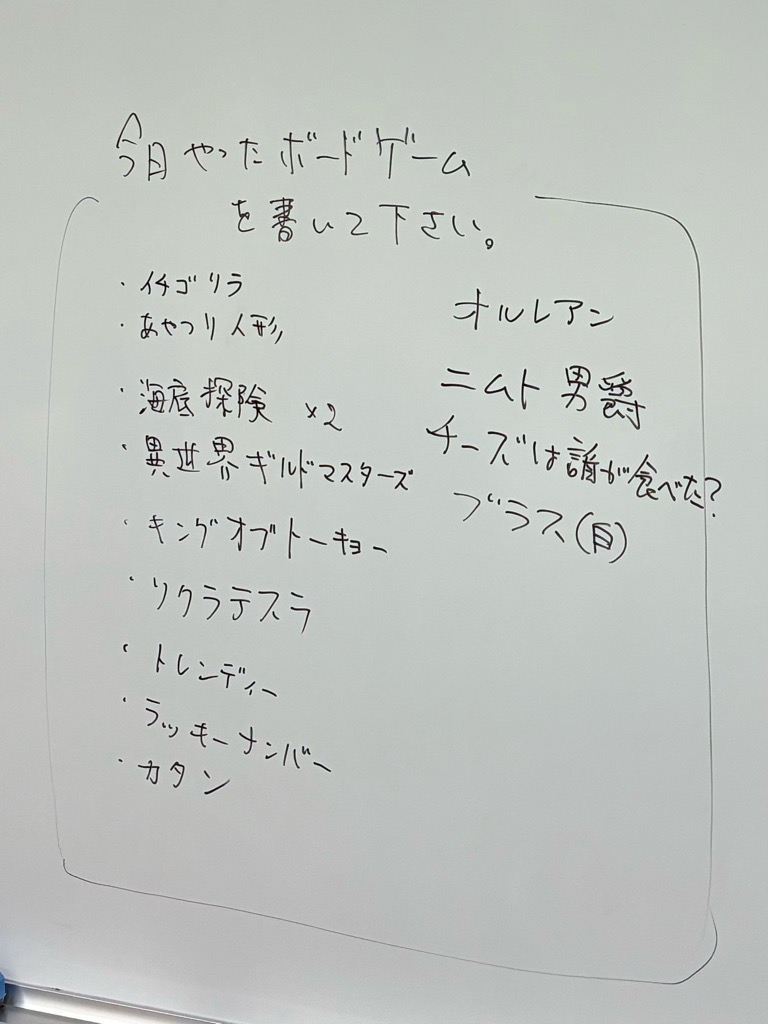 今日やったボードゲーム
を書いて下さい。
・イチゴリラ
・あやつり人形
・海底探険 ×2
・異世界ギルドマスターズ
・キングオブトーキョー
・ソクラテスラ
・トレンディー
・ラッキーナンバー
・カタン
オルレアン
ニムト 男爵
チーズは誰が食べた?
ブラス(白)